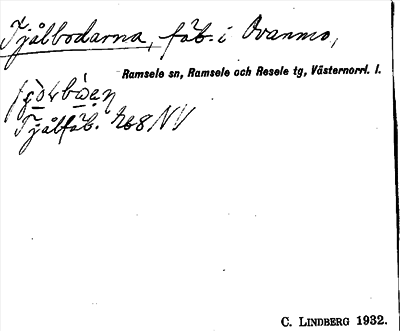 Tjålbodarna, fäb. i Ovanmo,
Ramsele sn, Ramsele och Resele tg, Västernorrl. l.
Tjålfäb. 268 NV
C. LINDBERG 1932.